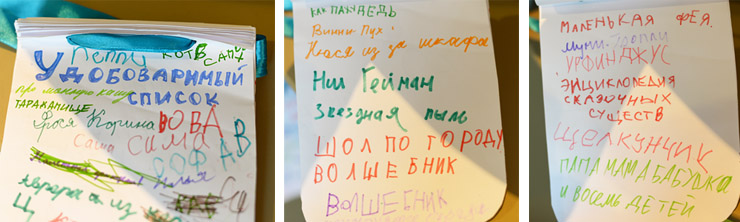 Пеппи
КОТ В САПГ
УДОБОВАРИМЫЙ
СПИСОК
про манную кашу
ТАРАКАНИЩЕ
Фрося Корина
ВОВА
Саша
СИМА
СОФ
А.В
из
КАК ПАПУ ДЕДЬ
Винни-Пух
Кася из за шкафа
Нил Гейман
Звездная пыль
ШОЛ ПО ГОРОДУ
ВОЛШЕБНИК
ВОЛШЕБНИК
МАЛЕНЬКАЯ ФЕЯ.
Муми-Тролли
УРФИН ДЖУС
ЭНЦИКЛОПЕДИЯ
СКАЗОЧНЫХ
СУЩЕСТВ
ЩЕЛКУНЧИК
ПАПА МАМА БАБУШКА
И ВОСЕМЬ ДЕТЕЙ